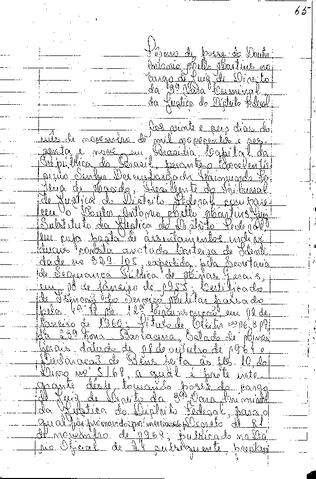 65
Têrmo de posse do Doutor
Antônio Mello Martins no
cargo de Juiz de Direito
da 3ª Vara Criminal
da Justiça do Distrito Federal
Aos vinte e seis dias do
mês de novembro de mil novecentos e ses-
senta e nove em Brasília, Capital da
República do Brasil, perante o Excelentís-
simo Senhor Desembargador Raimundo
de Macedo, Presidente do Tribunal
de Justiça do Distrito Federal, compare-
ceu o Doutor Antônio Mello Martins, Juiz
Substituto da Justiça do Distrito Federal
em cuja pasta de assentamentos indivi-
duais consta anotada Carteira de Identi-
dade nº 339.105, expedida pela Secretaria
de Segurança Pública de Minas Gerais,
em de janeiro de 1953; Certificado
de Serviço Militar passado
pela 12ª Circunscrição em
janeiro de 1960; Título de Eleitor nº
Zona Estado de Minas
Gerais, datado de 08 de outubro de 1961 e
Declaração de Bens feita às fls. 10, do
Livro nº 5168, a qual é parte inte-
grante deste, tomando posse do cargo
de Juiz de Direito da 3ª Vara Criminal
da Justiça do Distrito Federal, para o
qual foi promovido por Decreto de 21
de novembro de 1969, publicado no Diá-
rio Oficial de 24 subsequente